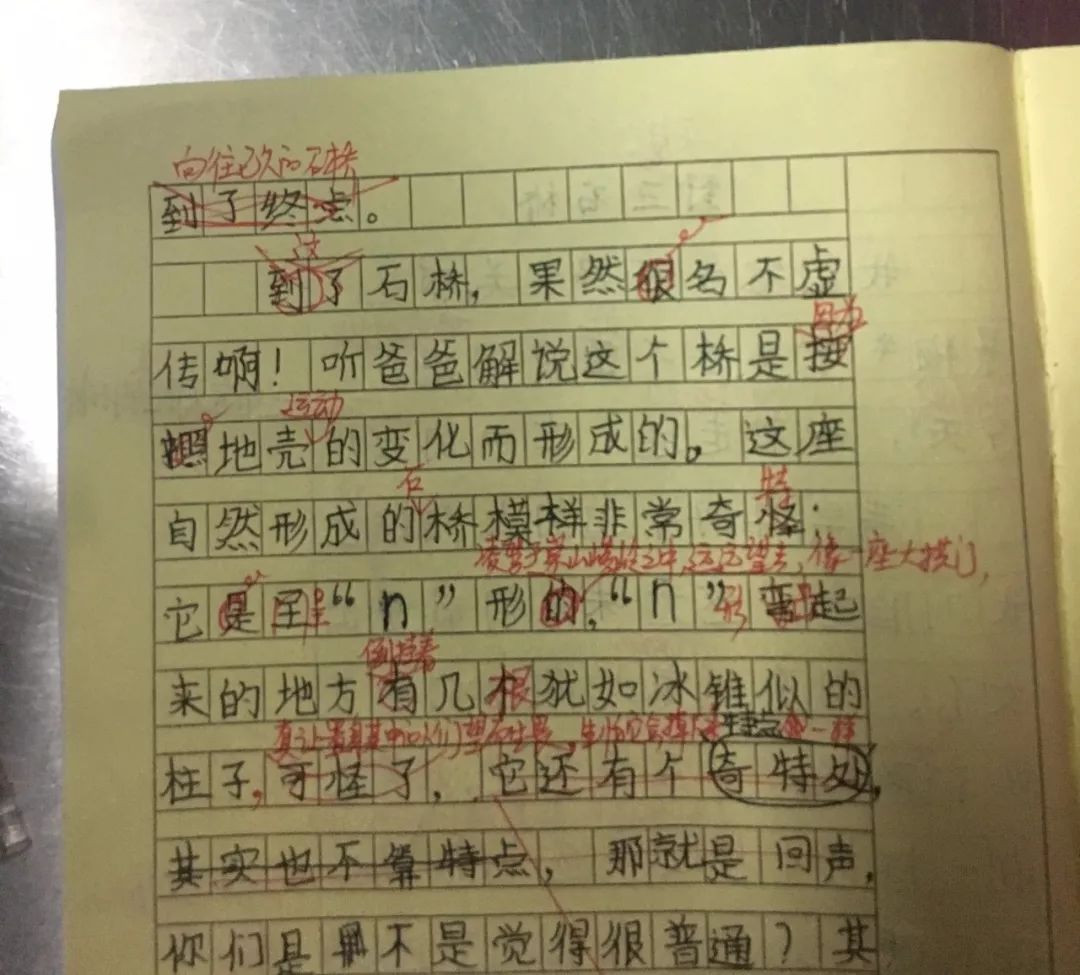 向往已久的石桥
到了终点。
这
到了石桥，果然很名不虚
因为
传啊！听爸爸解说这个桥是按
运动
照地壳的变化而形成的。这座
石
特
自然形成的桥模样非常奇怪：
远远望去，像一座大拱门，
它是呈“n”形的，“n”形弯起
倒挂着
来的地方有几根犹如冰锥似的
一样
柱子，可怪了，它还有个奇特处，
其实也不算特点，那就是回声，
你们是不是觉得很普通？其